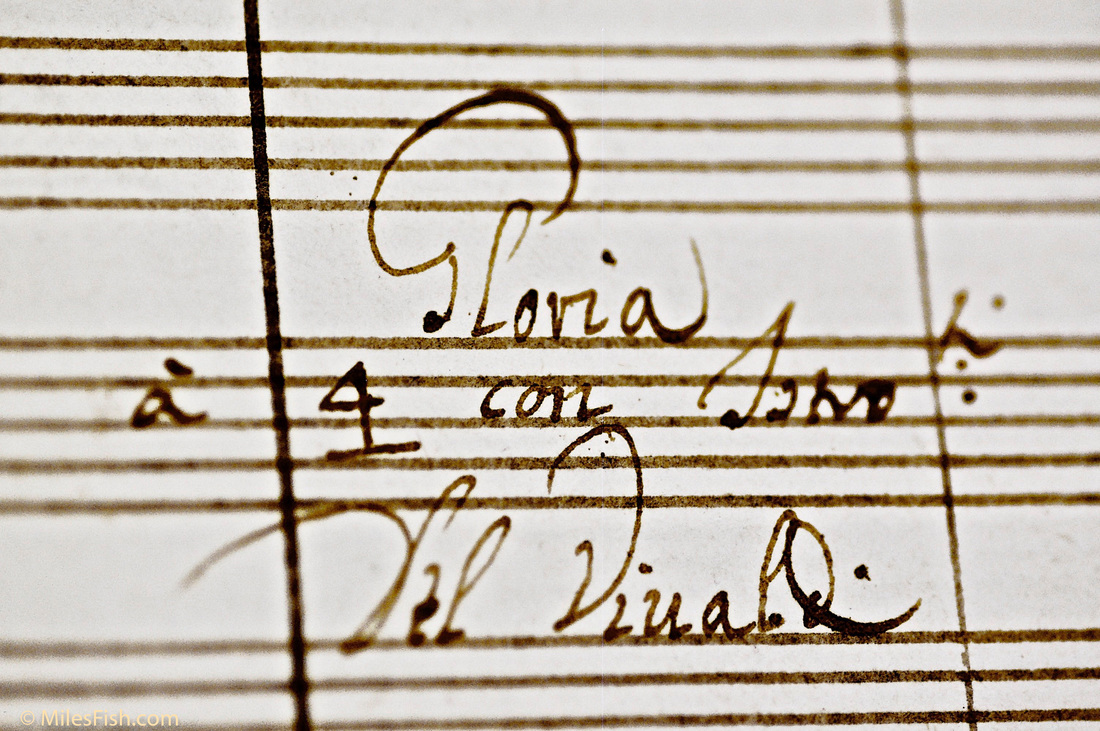 Gloria
à 4 con Istro ti:
Del Viualdi
© MilesFish.com